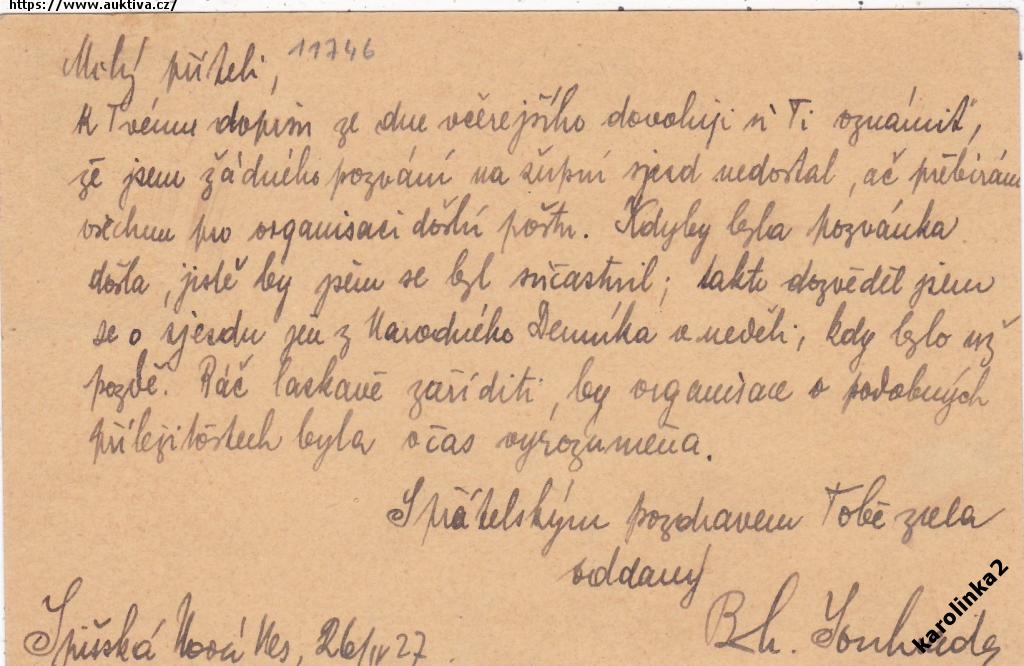 https://www.auktiva.cz/
Milý příteli, 11746
k Tvému dopisu ze dne včerejšího dovoluji si Ti oznámiť,
že jsem žádného pozvání na župní sjezd nedostal, ač přebírám
všechnu pro organisaci došlú poštu. Kdyby byla pozvánka
došla, jistě by jsem se byl súčastnil; takto dozvěděl jsem
se o sjezdu jen z Národného Denníka v neděli, kdy bylo už
pozdě. Ráč laskavě zaříditi, by organisace o podobných
příležitostech byla včas vyrozuměna.
S přátelským pozdravem Tobě zcela
oddaný
Spišská Nová Ves, 26/IV 27 Boh.
karolinka2